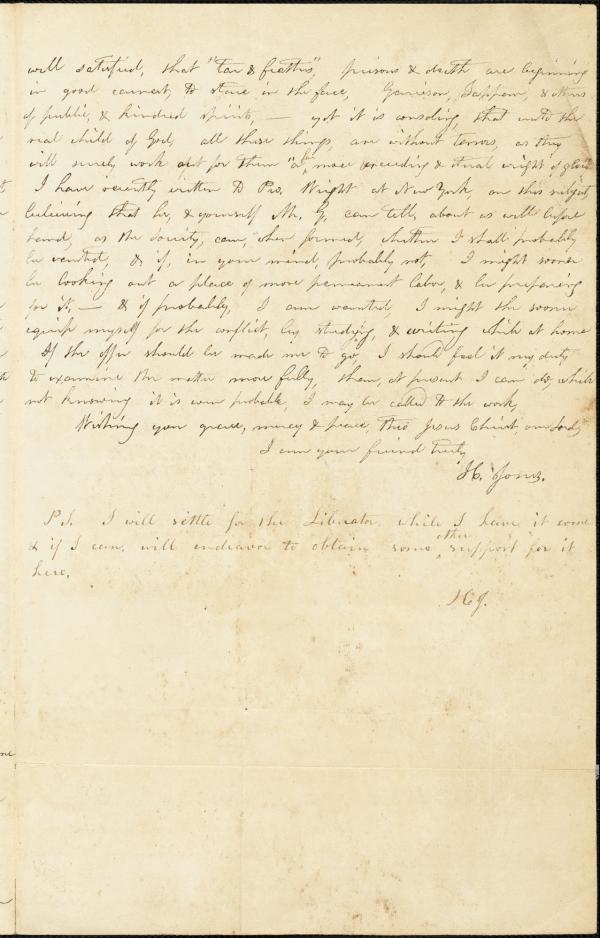 well satisfied, that "tar & feathers", prisons & death are beginning
in good earnest, to stare in the face, Garrison, Tappan, & others
of public, & kindred spirits, — yet it is consoling, that unto the
real child of God, all these things, are without terrors, as they
will surely work out for them "a, more exceeding & eternal weight of glory"
I have recently written to Pro. Wright at New York, on this subject,
believing that he, & yourself Mr. G, can tell, about as well before
hand, as the Society, can, when formed, whether I shall probably
be wanted, & if, in your mind, probably not, I might sooner
be looking out a place of more permanent labor, & be preparing
for it, — & if probably, I am wanted, I might the sooner
equip myself for the conflict, by studying, & writing while at home
If the offer should be made me to go, I should feel it my duty
to examine the matter more fully, than, at present I can do, while
not knowing it is even probable, I may be called to the work,
Wishing you grace, mercy & peace, thro Jesus Christ, our Lord,
I am your friend truly
H. Jones.
P.S. I will settle for the Liberator while I have it come
& if I can, will endeavor to obtain some other support for it
here.
H J.